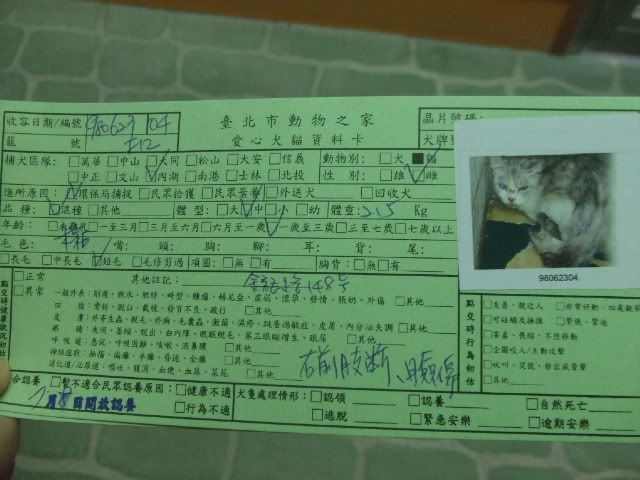 收容日期/編號 980623 04 臺北市動物之家 晶片號碼:
籠號 F12 愛心犬貓資料卡 犬牌號
捕犬區隊: □萬華 □中山 □大同 □松山 □大安 □信義 動物別: □犬 ■貓
□中正 □文山 □內湖 □南港 □士林 □北投 性別: □雄 □雌
進所原因: □環保局捕捉 □民眾拾獲 □民眾棄養 □外送犬 □回收犬
品種: □混種 □其他 體型: □大 □中 □小 □幼 體重: 2.5 Kg
年齡: □未離乳 □一至三月 □三月至六月 □六月至一歲 □一歲至三歲 □三至七歲 □七歲以上
毛色: 嘴: 頭: 胸: 腳: 耳: 背: 尾:
□長毛 □中長毛 □短毛 □毛修剪過 項圈: □無 □有 胸背: □無 □有
98062304.
點交時健康狀況初估
□正常 其他註記: 148號
□異常 一般外表: 削瘦、脫水、肥胖、畸型、腫瘤、赫尼亞、虛弱、懷孕、發情、脹奶、外傷 □其他
四肢: 骨折、脫臼、截肢、發育不良、跛行 □其他
皮膚: 外寄生蟲、脫毛、疥癬、毛囊蟲、黴菌、濕疹、跳蚤過敏症、皮屑、內分泌失調 □其他
眼睛: 失明、萎縮、脫出、白內障、眼瞼脫毛、第三眼瞼增生、眼屎 □其他
呼吸道: 急促、呼吸困難、咳嗽、流鼻膿 □其他
神經症狀: 抽搐、偏癱、半癱、昏迷、全癱 □其他
消化道/泌尿道: 嘔吐、腹瀉、血便、血尿、菜花 □其他
右前肢斷、眼傷
點交時行為初估
□友善、親近人 □非常好動、四處觀察
□可碰觸及撫摸 □緊張、緊迫
□害羞、畏縮、不想移動
□企圖咬人/主動攻擊
□吠叫、咒號、發出威脅聲
□其他
合認養 □暫不適合民眾認養原因: □健康不適 犬隻處理情形: □認領 □認養 □自然死亡
7月8日開放認養 □行為不適 □逃脫 □緊急安樂 □逾期安樂